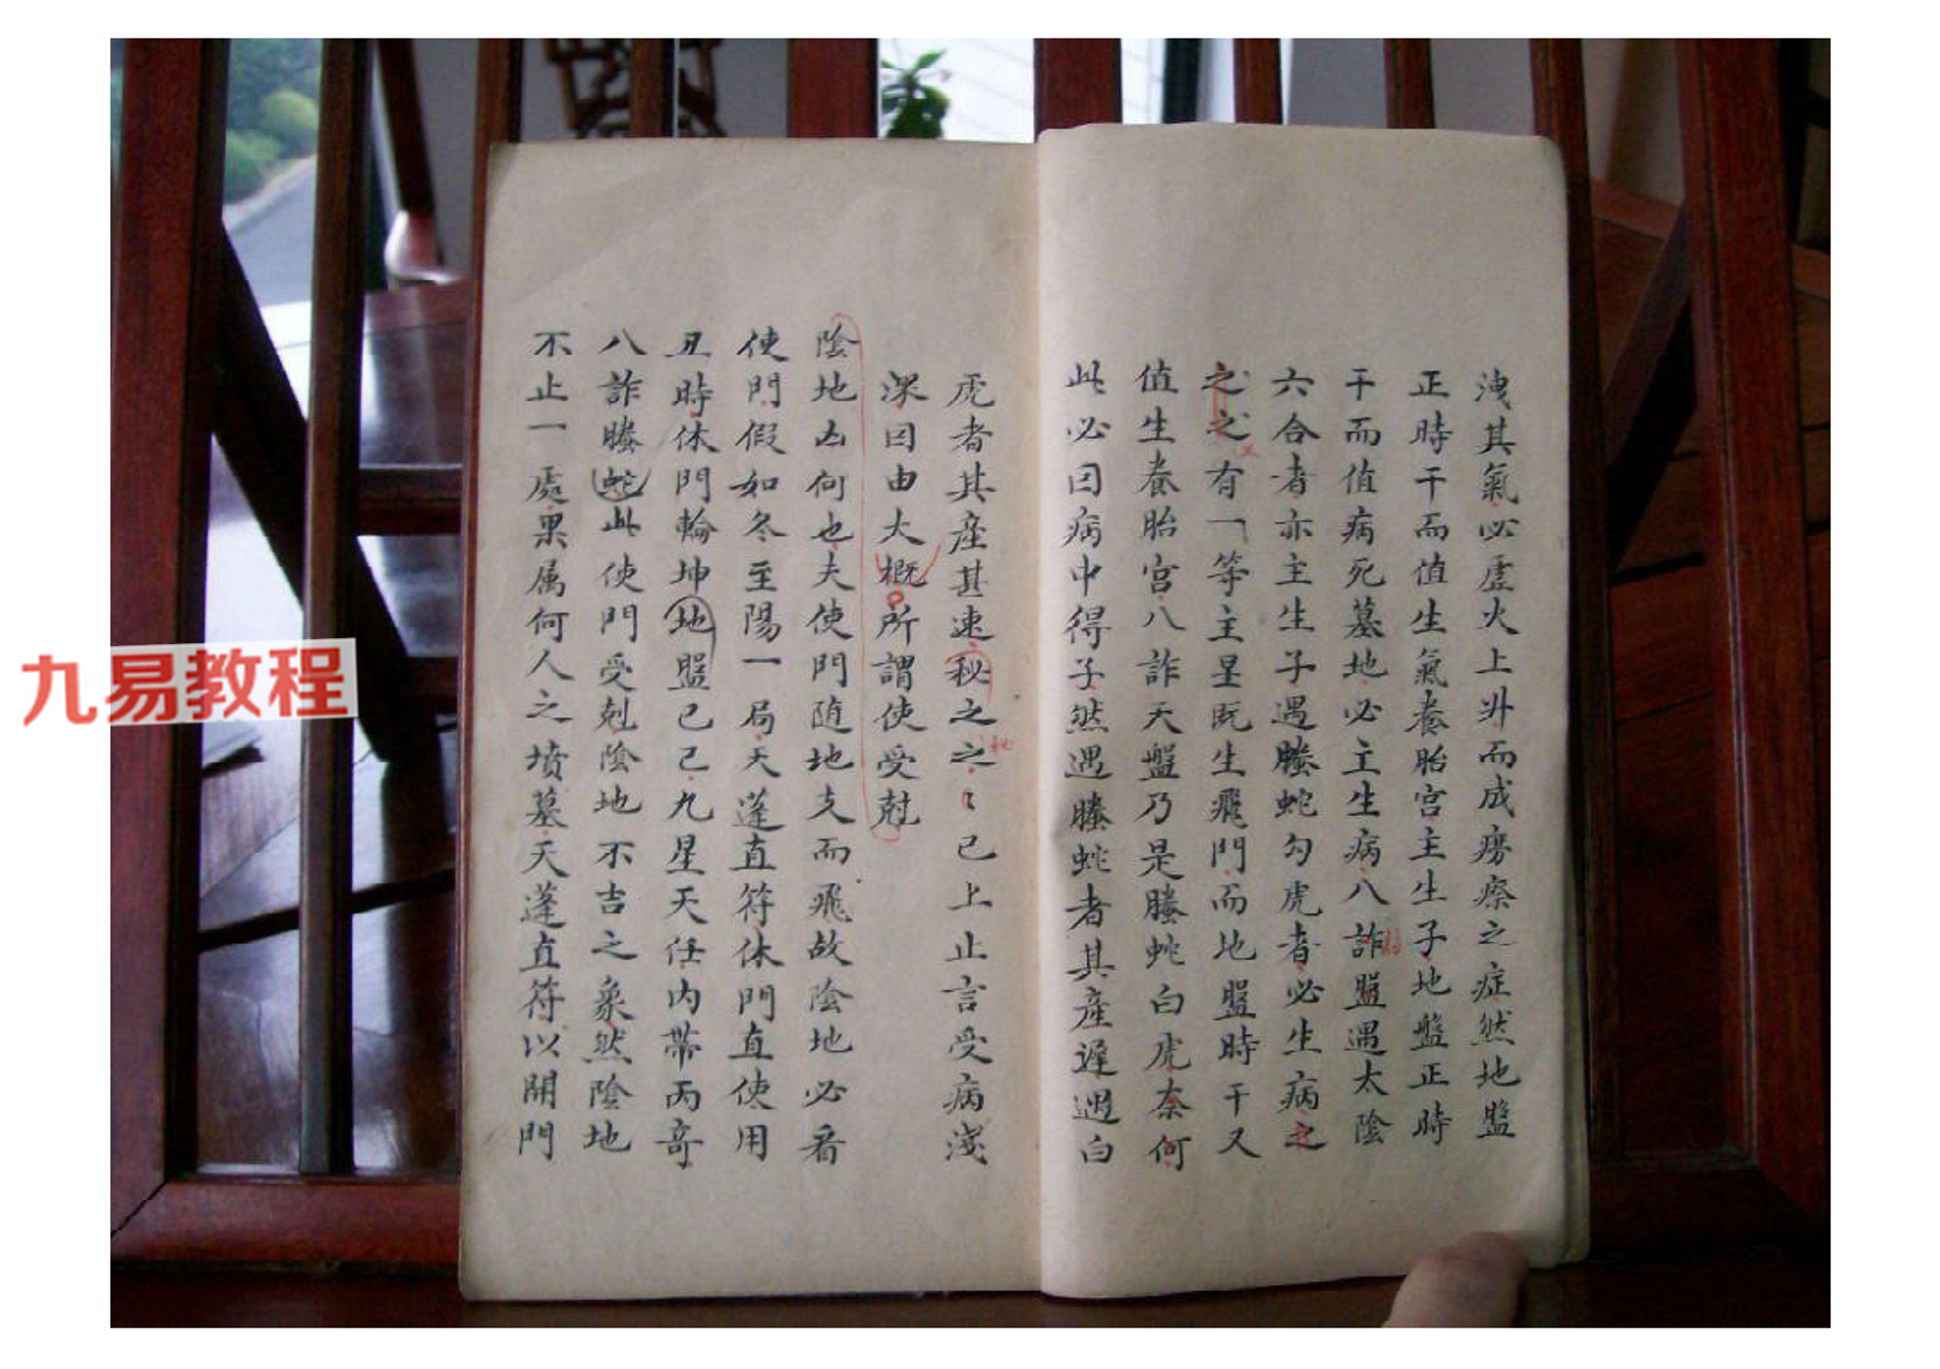 洩其氣必虛火上升而成癆瘵之症然地盤
正時干而值生氣養胎宮主生子地盤正時
干而值病死墓地必主生病八詐盤遇太陰
六合者亦主生子遇螣蛇勾虎者必生病之
之之有一等主星既生飛門而地盤時干又
值生養胎宮八詐天盤乃是螣蛇白虎奈何
此必因病中得子然遇螣蛇者其產遲遇白
虎者其產甚速秘之之已上止言受病淺
深因由大概所謂使受尅
陰地凶何也夫使門随地支而飛故陰地必看
使門假如冬至陽一局天蓬直符休門直使用
丑時休門輪坤地盤己己九星天任内帶丙奇
八詐螣蛇此使門受尅陰地不吉之象然陰地
不止一處果属何人之墳墓天蓬直符以開門
九易教程